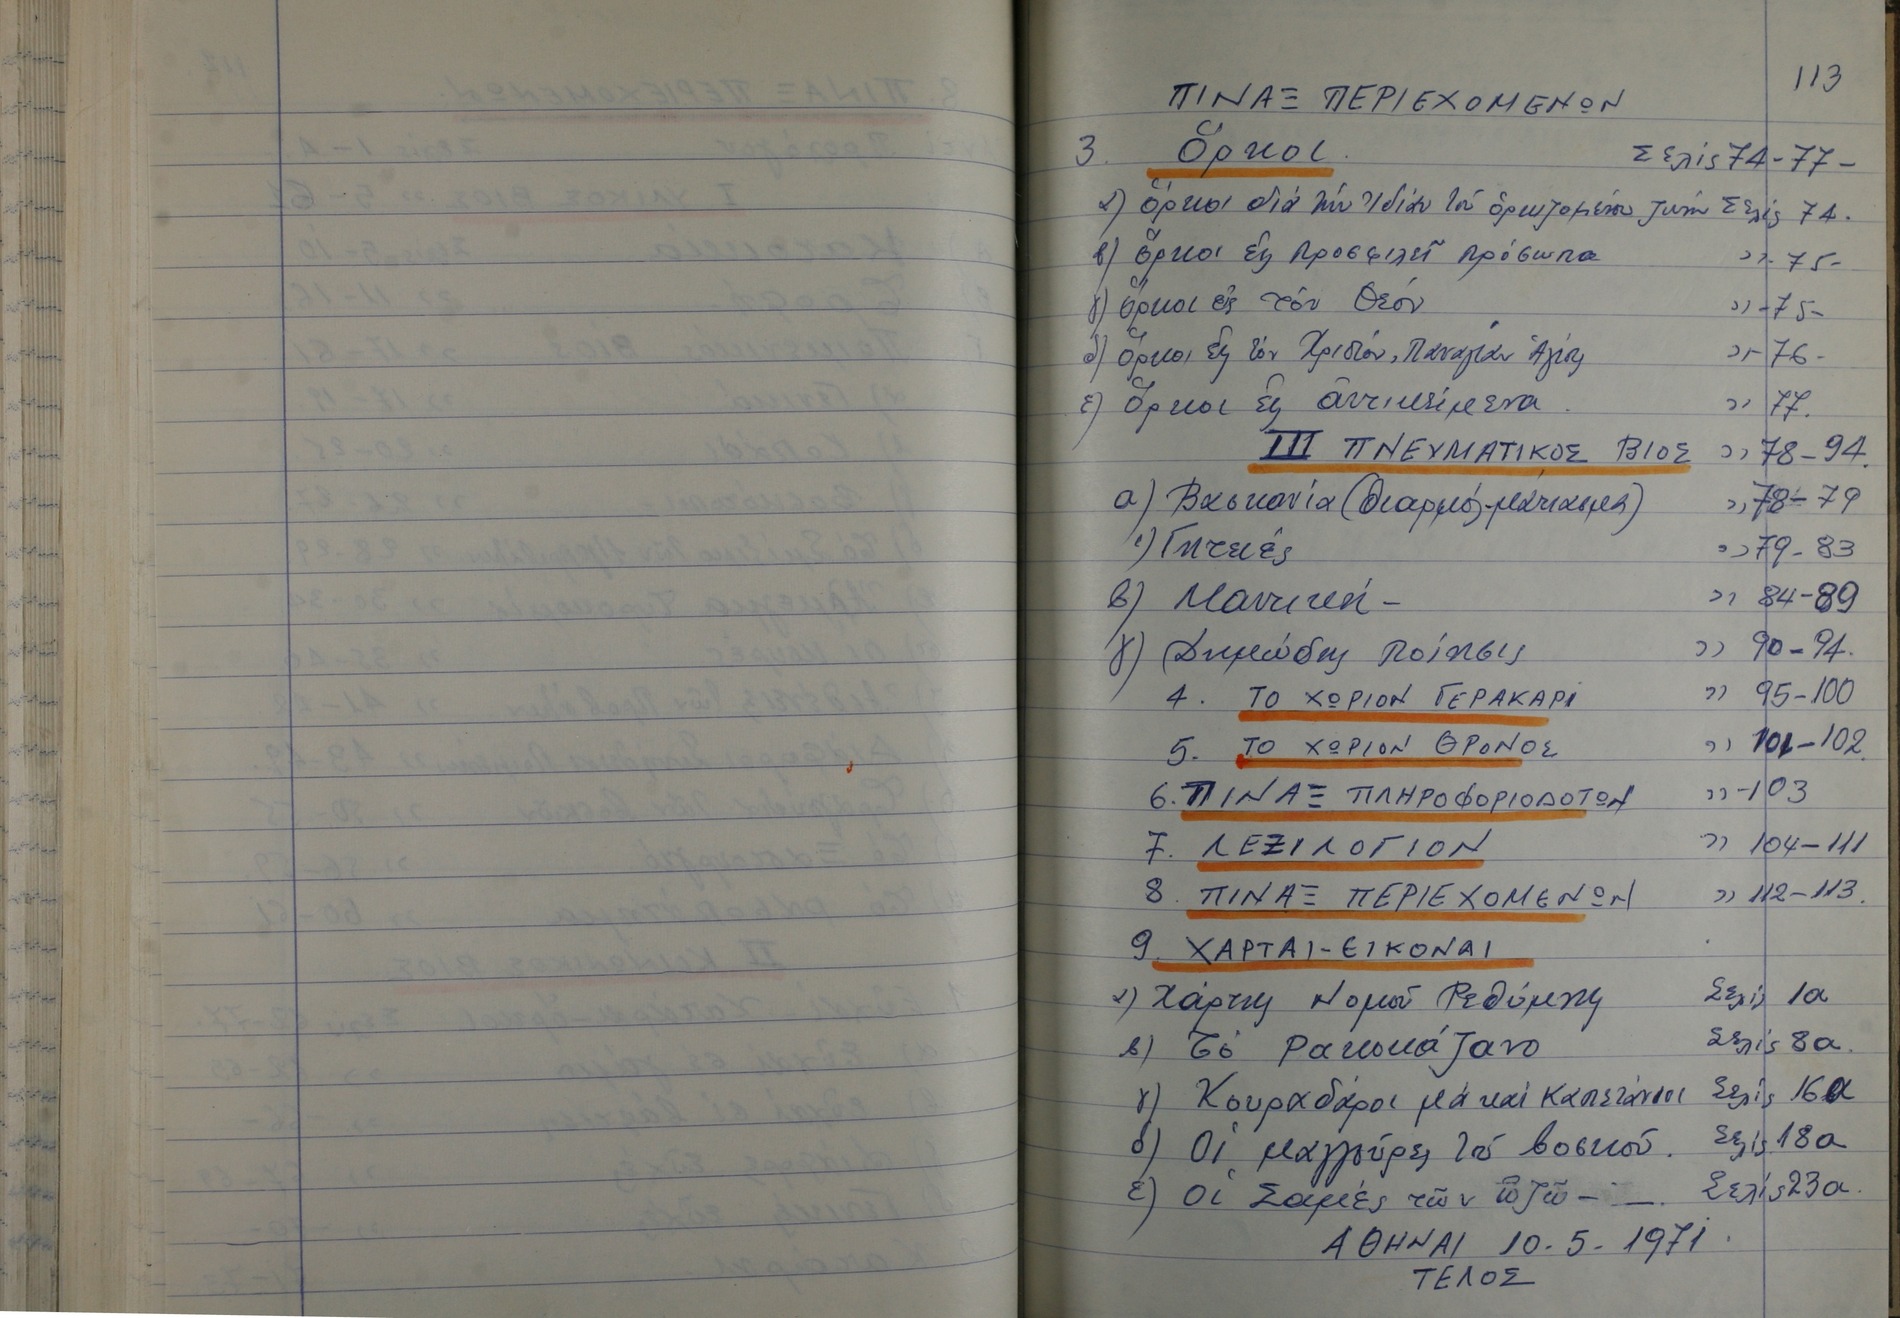 113
ΠΙΝΑΞ ΠΕΡΙΕΧΟΜΕΝΩΝ
3. Ὅρκοι. Σελίς 74-77-
α) ὅρκοι διά τήν ἰδίαν τοῦ ὁρκιζομένου ζωήν Σελίς 74.
β) ὅρκοι εἰς προσφιλῆ πρόσωπα ,, 75-
γ) ὅρκοι εἰς τόν Θεόν ,, -75-
δ) Ὅρκοι εἰς τόν Χριστόν, Παναγίαν Ἁγίους ,, -76-
ε) Ὅρκοι εἰς ἀντικείμενα. ,, 77.
III ΠΝΕΥΜΑΤΙΚΟΣ ΒΙΟΣ ,, 78-94.
α) Βασκανία (Θιαρμός-μάτιασμα) ,, 78-79
Γητειές ,, 79-83
β) Μαντική - ,, 84-89
γ) Δημώδης Ποίησις ,, 90-94.
4. ΤΟ ΧΩΡΙΟΝ ΓΕΡΑΚΑΡΙ ,, 95-100
5. ΤΟ ΧΩΡΙΟΝ ΘΡΟΝΟΣ ,, 101-102
6. ΠΙΝΑΞ ΠΛΗΡΟΦΟΡΙΟΔΟΤΩΝ ,, -103
7. ΛΕΞΙΛΟΓΙΟΝ ,, 104-111
8. ΠΙΝΑΞ ΠΕΡΙΕΧΟΜΕΝΩΝ ,, 112-113.
9. ΧΑΡΤΑΙ-ΕΙΚΟΝΑΙ
α) Χάρτης Νομοῦ Ρεθύμνης Σελίς 1α
β) Τό Ρακοκάζανο Σελίς 8α.
γ) Κουραδάροι μά καί Καπετάνιοι Σελίς 16α
δ) Οἱ μαγγούρες τοῦ βοσκοῦ. Σελίς 18α
ε) Οἱ Σαμιές τῶν ὠζῶ - - Σελίς 23α.
ΑΘΗΝΑΙ 10-5-1971.
ΤΕΛΟΣ